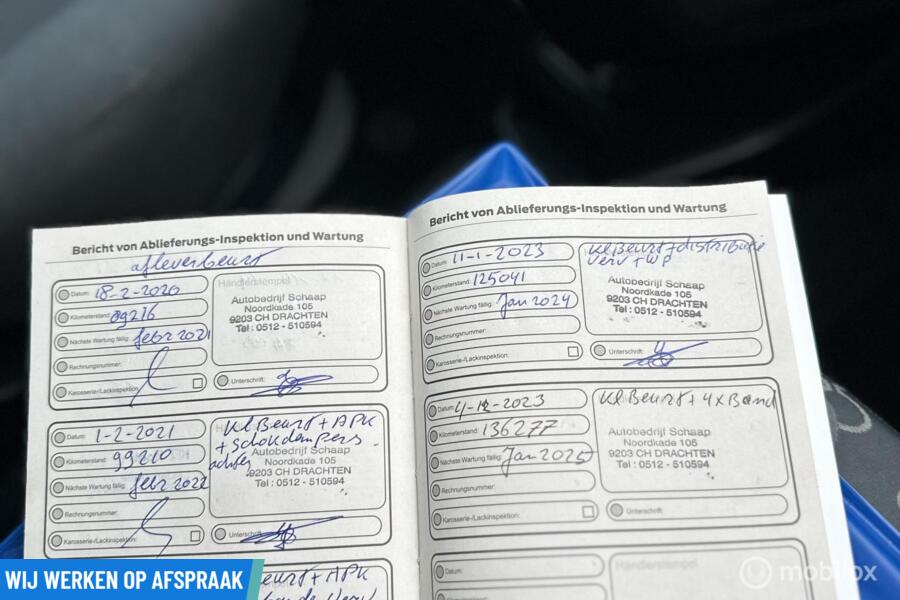 Bericht von Ablieferungs-Inspektion und Wartung
afleverbeurt
Datum: 18-2-2020
Kilometerstand:
Nächste Wartung fällig: febr 2021
Rechnungsnummer:
Karosserie-/Lackinspektion:
Händlerstempel
Autobedrijf Schaap
Noordkade 105
9203 CH DRACHTEN
Tel : 0512 - 510594
Unterschrift:
Datum: 1-2-2021
Kilometerstand: 99210
Nächste Wartung fällig: febr 2022
Rechnungsnummer:
Karosserie-/Lackinspektion:
Kl Beurt + APK
+ schokdempers
achter
Autobedrijf Schaap
Noordkade 105
9203 CH DRACHTEN
Tel : 0512 - 510594
Unterschrift:
eurt + APK
Bericht von Ablieferungs-Inspektion und Wartung
Datum: 11-1-2023
Kilometerstand: 125041
Nächste Wartung fällig: Jan 2024
Rechnungsnummer:
Karosserie-/Lackinspektion:
Kl Beurt + distributie
verv + WP
Autobedrijf Schaap
Noordkade 105
9203 CH DRACHTEN
Tel : 0512 - 510594
Unterschrift:
Datum: 4-12-2023
Kilometerstand: 136277
Nächste Wartung fällig: Jan 2025
Rechnungsnummer:
Karosserie-/Lackinspektion:
Kl Beurt + 4x Band
Autobedrijf Schaap
Noordkade 105
9203 CH DRACHTEN
Tel : 0512 - 510594
Unterschrift:
Datum:
Händlerstempel
WIJ WERKEN OP AFSPRAAK
mobilox